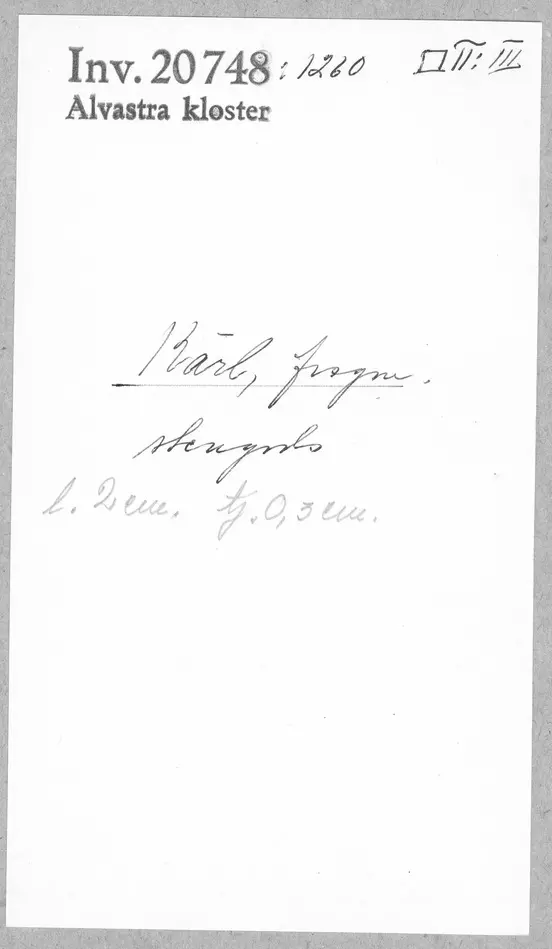 Inv. 20748 : 1260 □ II: III
Alvastra kloster
Kärl, fragm.
stengods
l. 2 cm. tj. 0,3 cm.